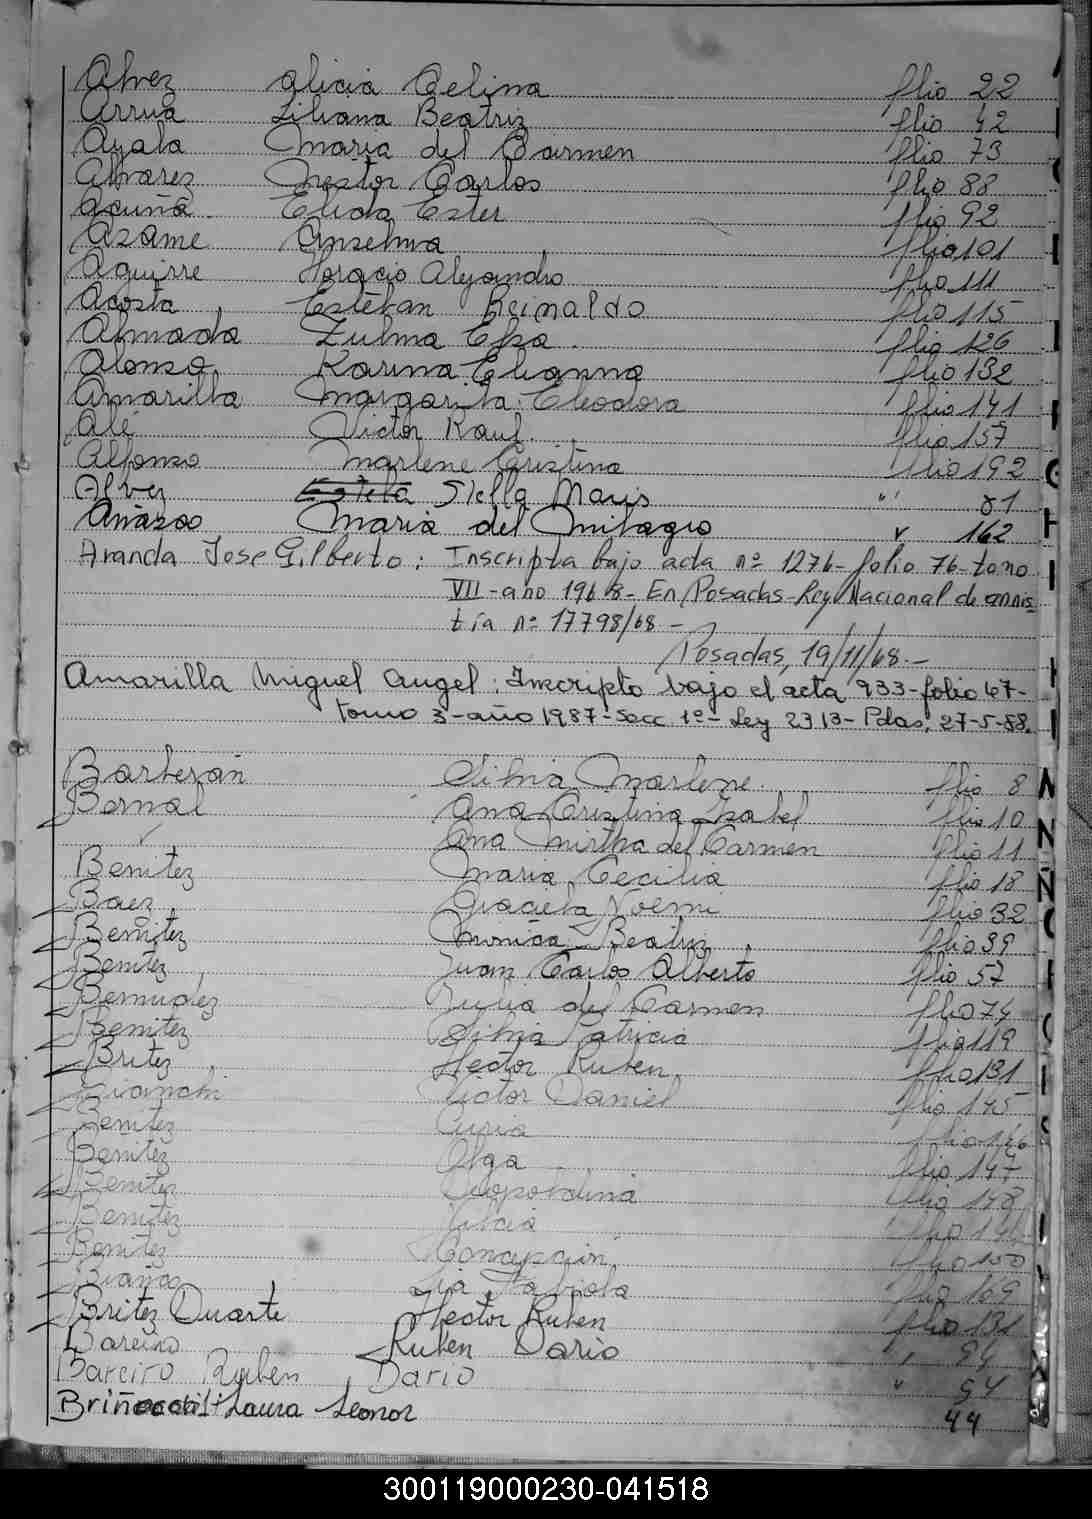 Alvez Alicia Celina folio 22
Arrua Liliana Beatriz folio 42
Ayala Maria del Carmen folio 73
Alvarez Nestor Carlos folio 88
Acuña Elida Ester folio 92
Azame Anselma folio 101
Aguirre Horacio Alejandro folio 111
Acosta Estevan Reinaldo folio 115
Almada Zulma Elsa. folio 126
Alonso Karina Elianna folio 132
Amarilla Margarita Eleodora folio 141
Alé Victor Raul folio 157
Alfonso Marlene Cristina folio 192
Alvez Estela Stella Maris " 81
Maria del Milagro 162
Aranda Jose Gilberto: Inscripta bajo acta nº 1276- folio 76- tomo
VII - año 1968- En Posadas- Ley Nacional de amnis
tía nº 17798/68 -
Posadas, 19/11/68.-
Amarilla Miguel Angel: Inscripto bajo el acta 933- folio 67-
tomo 3- año 1987- Secc 1º- Ley 2313- Pdas, 27-5-88.
Barberan Silvia Marlene. folio 8
Bernal Ana Cristina Isabel folio 10
Ana Mirtha del Carmen folio 11
Benitez Maria Cecilia folio 18
Baez Graciela Noemi folio 32
Benitez Monica Beatriz folio 39
Benitez Juan Carlos Alberto folio 57
Bermudez Julia del Carmen folio 74
Benitez Silvia Patricia folio 119
Britez Hector Ruben folio 131
Victor Daniel folio 145
Benitez folio 146
Benitez Olga folio 147
Benitez Leopoldina folio 148
Benitez folio
Benitez Concepcion folio 150
Lia Fabiola folio 169
Britez Duarte Hector Ruben folio 131
Bareiro Ruben Dario " 94
Bareiro Ruben Dario " 94
Laura Leonor 44
300119000230-041518